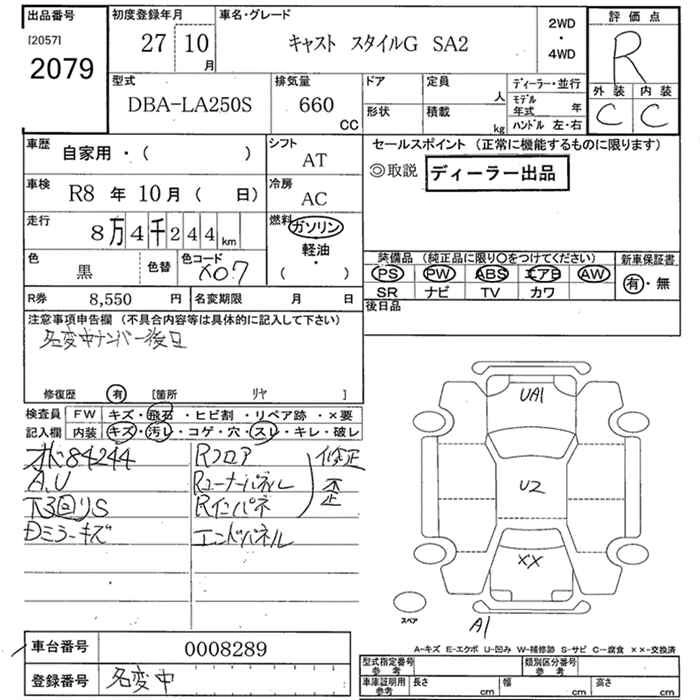 出品番号
[2057]
2079
初度登録年月
27 10
月
車名・グレード
キャスト スタイルG SA2
2WD
・
4WD
評価点
R
外装 内装
C C
型式
DBA-LA250S
排気量
660
CC
ドア
定員
人
形状
積載
kg
ディーラー・並行
モデル年式 年
ハンドル 左・右
車歴
自家用・( )
シフト
AT
車検
R8 年 10 月 ( 日)
冷房
AC
走行
8万4千244km
燃料
ガソリン
軽油・
( )
色
黒
色替
色コード
X07
R券 8,550 円
名変期限 月 日
セールスポイント (正常に機能するものに限ります)
◎取説 ディーラー出品
装備品 (純正品に限り〇をつけてください)
PS PW ABS エアB AW
SR ナビ TV カワ
新車保証書
有・無
後日品
注意事項申告欄 (不具合内容等は具体的に記入して下さい)
名変中ナンバー後日
修復歴 有 [箇所 リヤ ]
検査員
記入欄
FW キズ・飛石・ヒビ割・リペア跡・×要
内装 キズ・汚レ・コゲ・穴・スレ・キレ・破レ
84244
A.U
下3回りS
Dミラーキズ
Rフロア
Rコーナーパネル
Rインパネ
エンドパネル
修正
歪
UA1
U2
XX
A1
スペア
A-キズ E-エクボ U-凹み W-補修跡 S-サビ C-腐食 ××-交換済
車台番号 0008289
登録番号 名変中
型式指定番号
参考
類別区分番号
参考
車庫証明用
参考
長さ cm
幅 cm
高さ cm